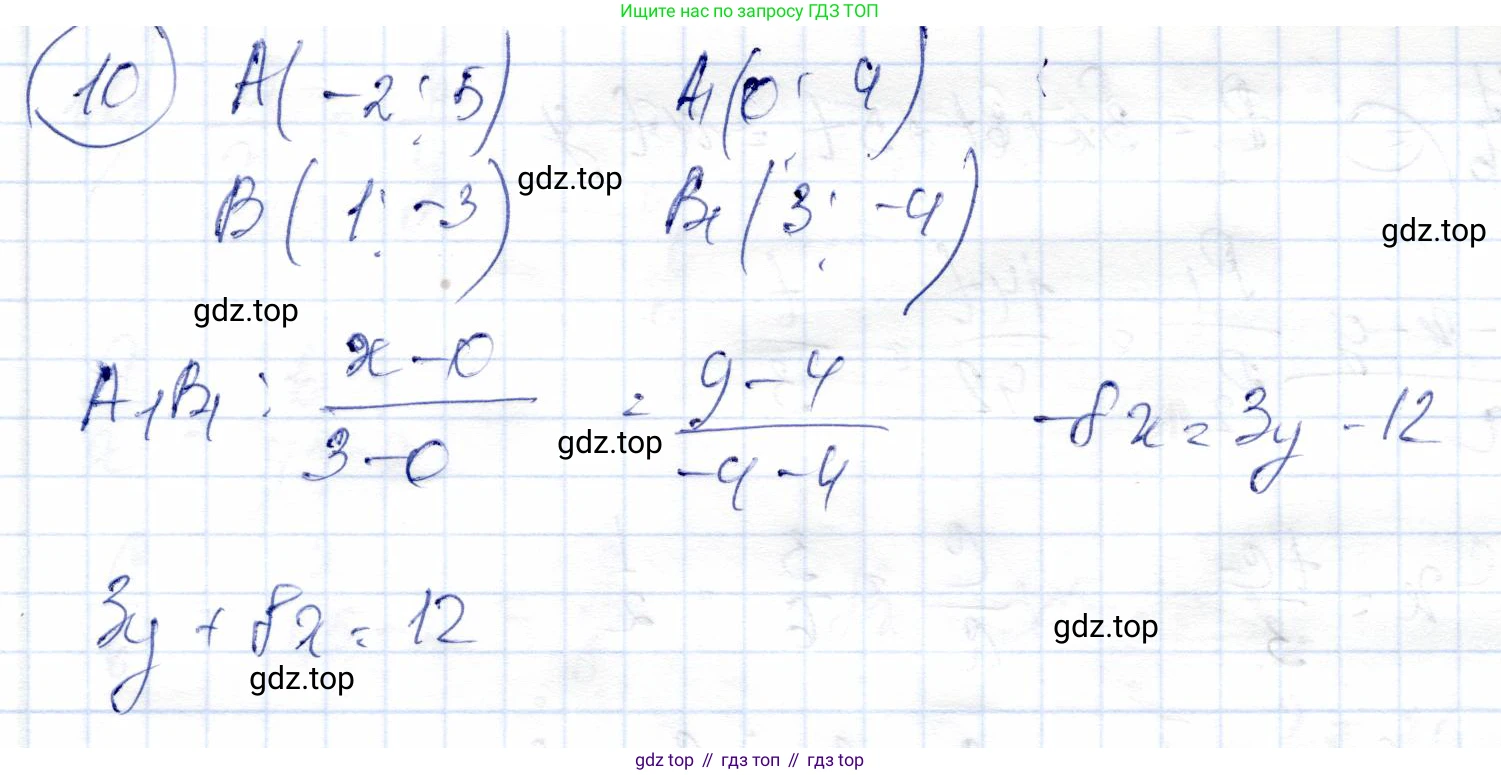 Ищите нас по запросу ГДЗ ТОП
10 A(-2; 5) A₁(0; 4)
B(1; -3) gdz.top B₁(3; -4) gdz.top
gdz.top
A₁B₁: (x-0)/(3-0) = (y-4)/(-4-4) -8x = 3y - 12
gdz.top
3y + 8x = 12 gdz.top
gdz.top
gdz top // гдз топ // гдз top